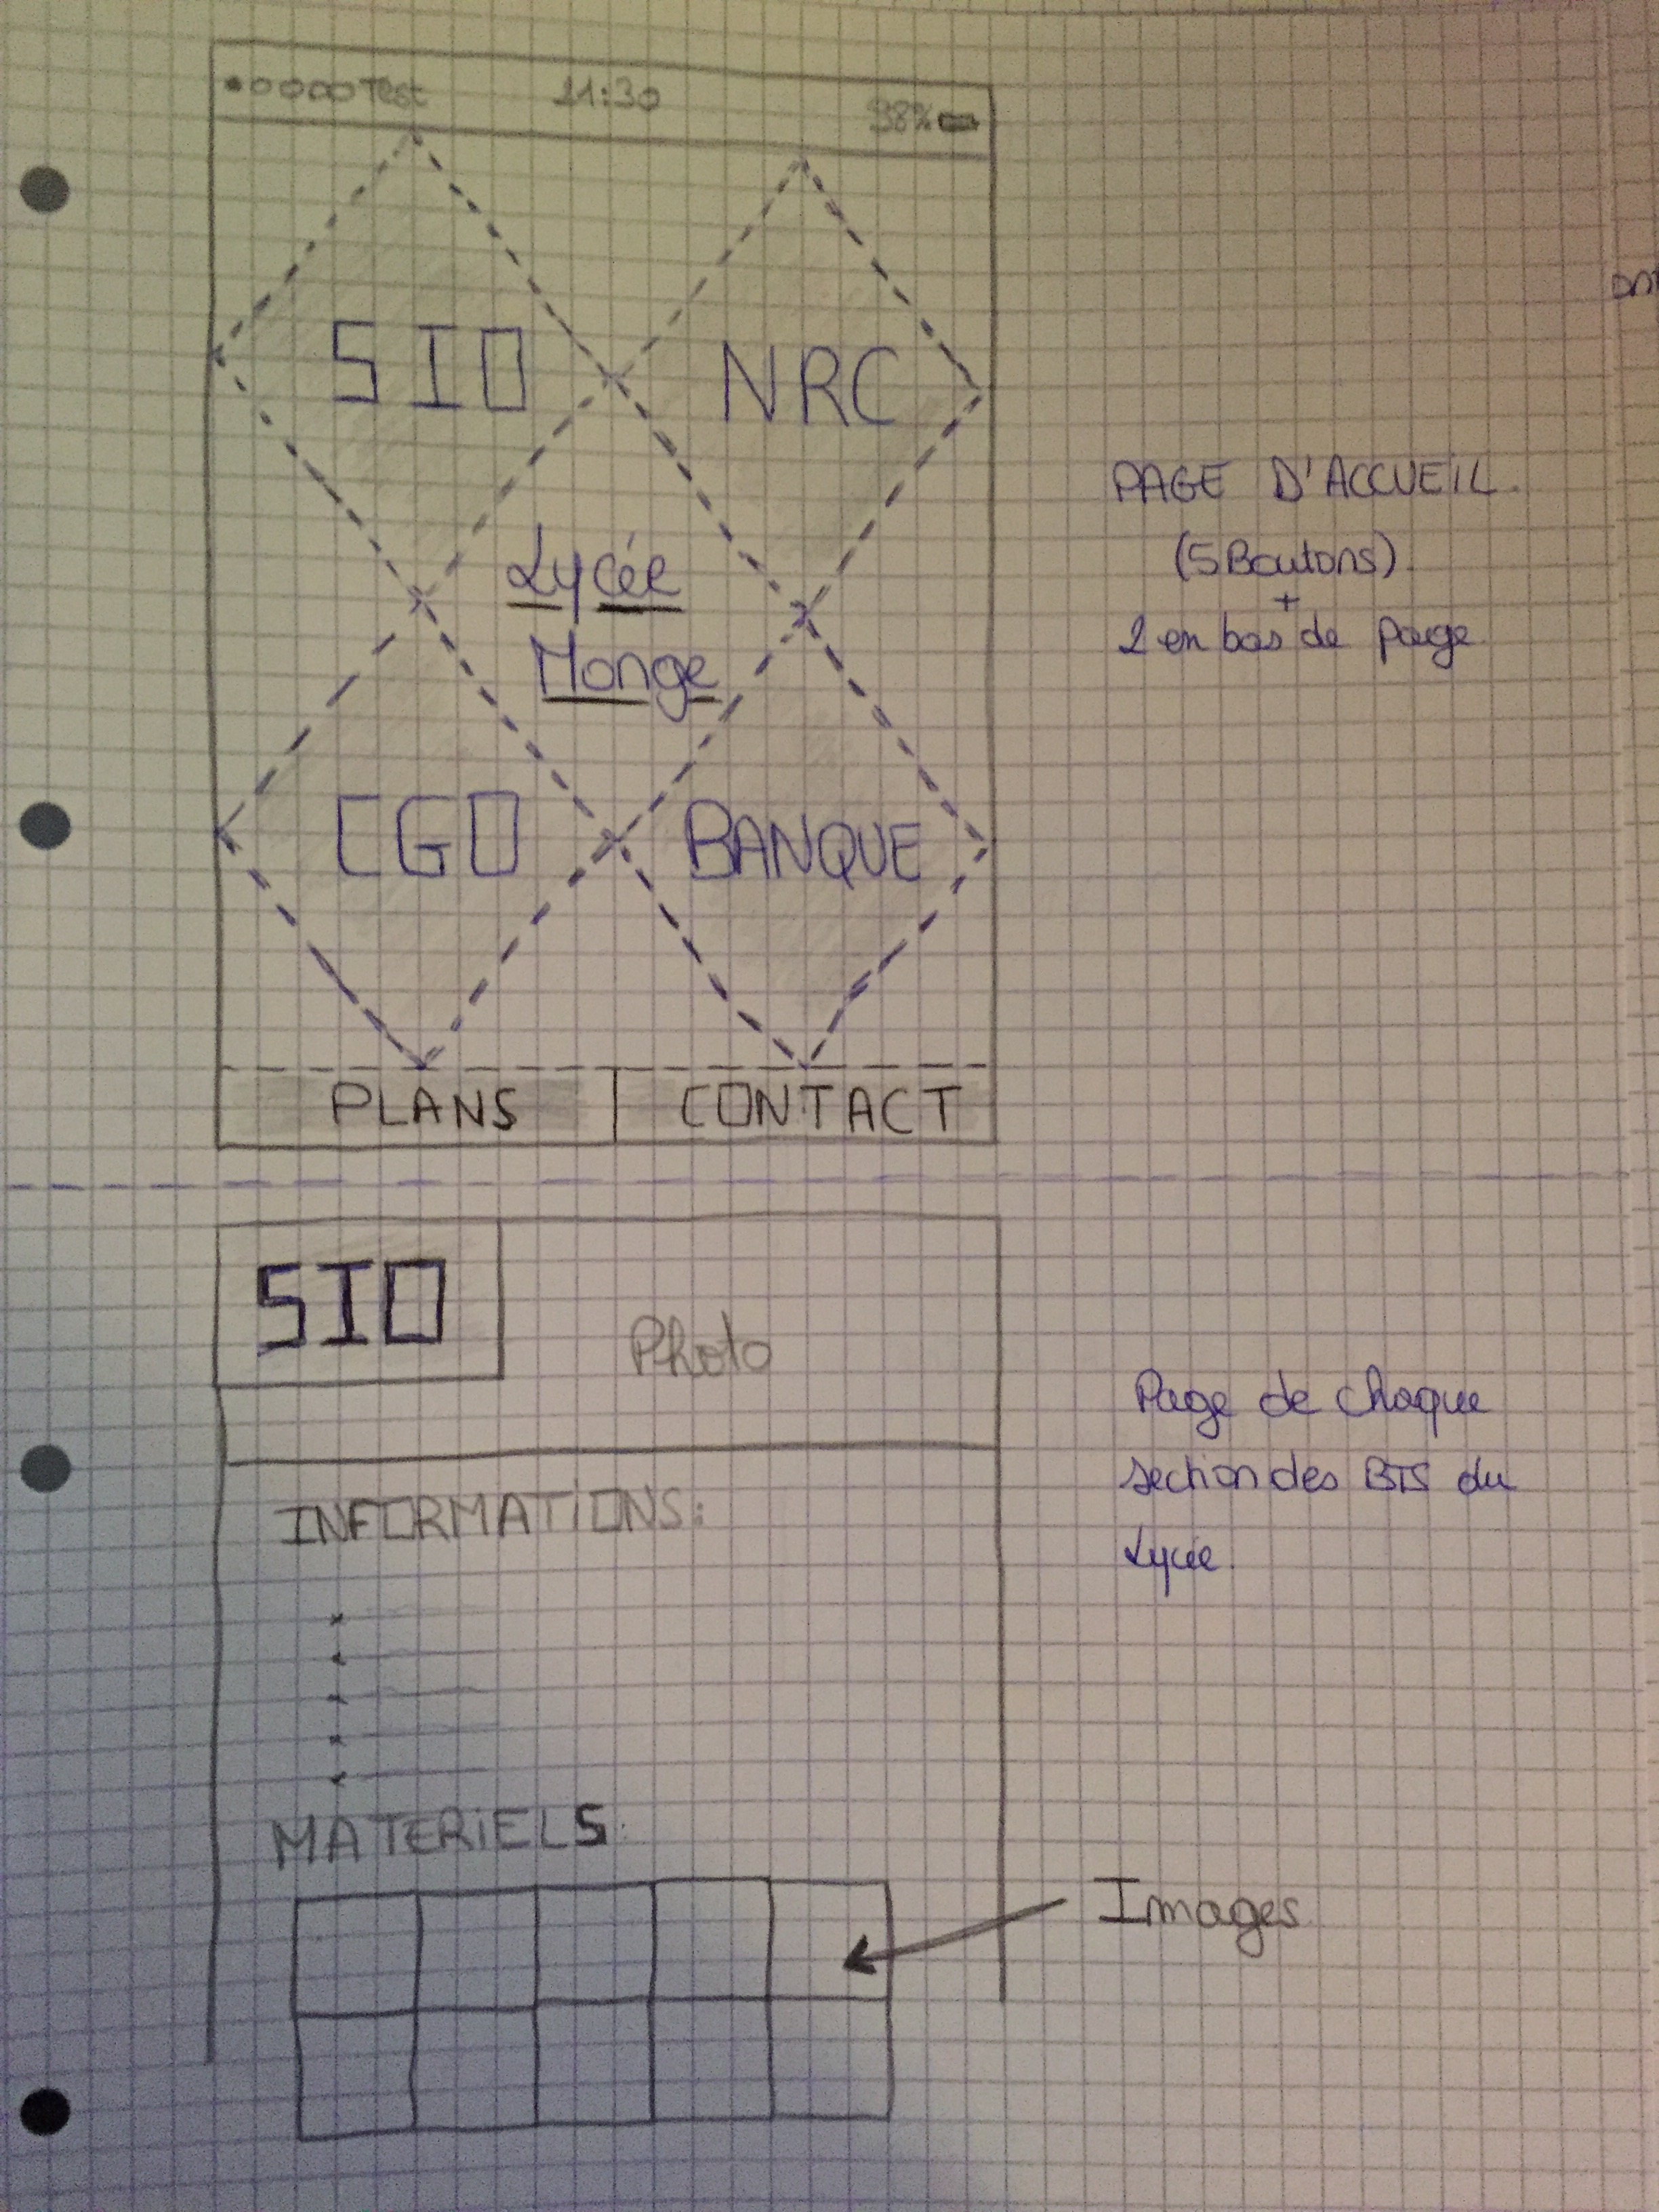 Test 11:30 98%
SIO NRC
Lycée
Monge
CGO BANQUE
PLANS CONTACT
PAGE D'ACCUEIL.
(5 Boutons).
+
2 en bas de page.
SIO
Photo
INFORMATIONS:
MATERIELS
Page de chaque
section des BTS du
Lycée.
Images